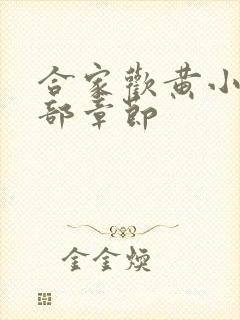 合家歡黄小
部章節
金金煐